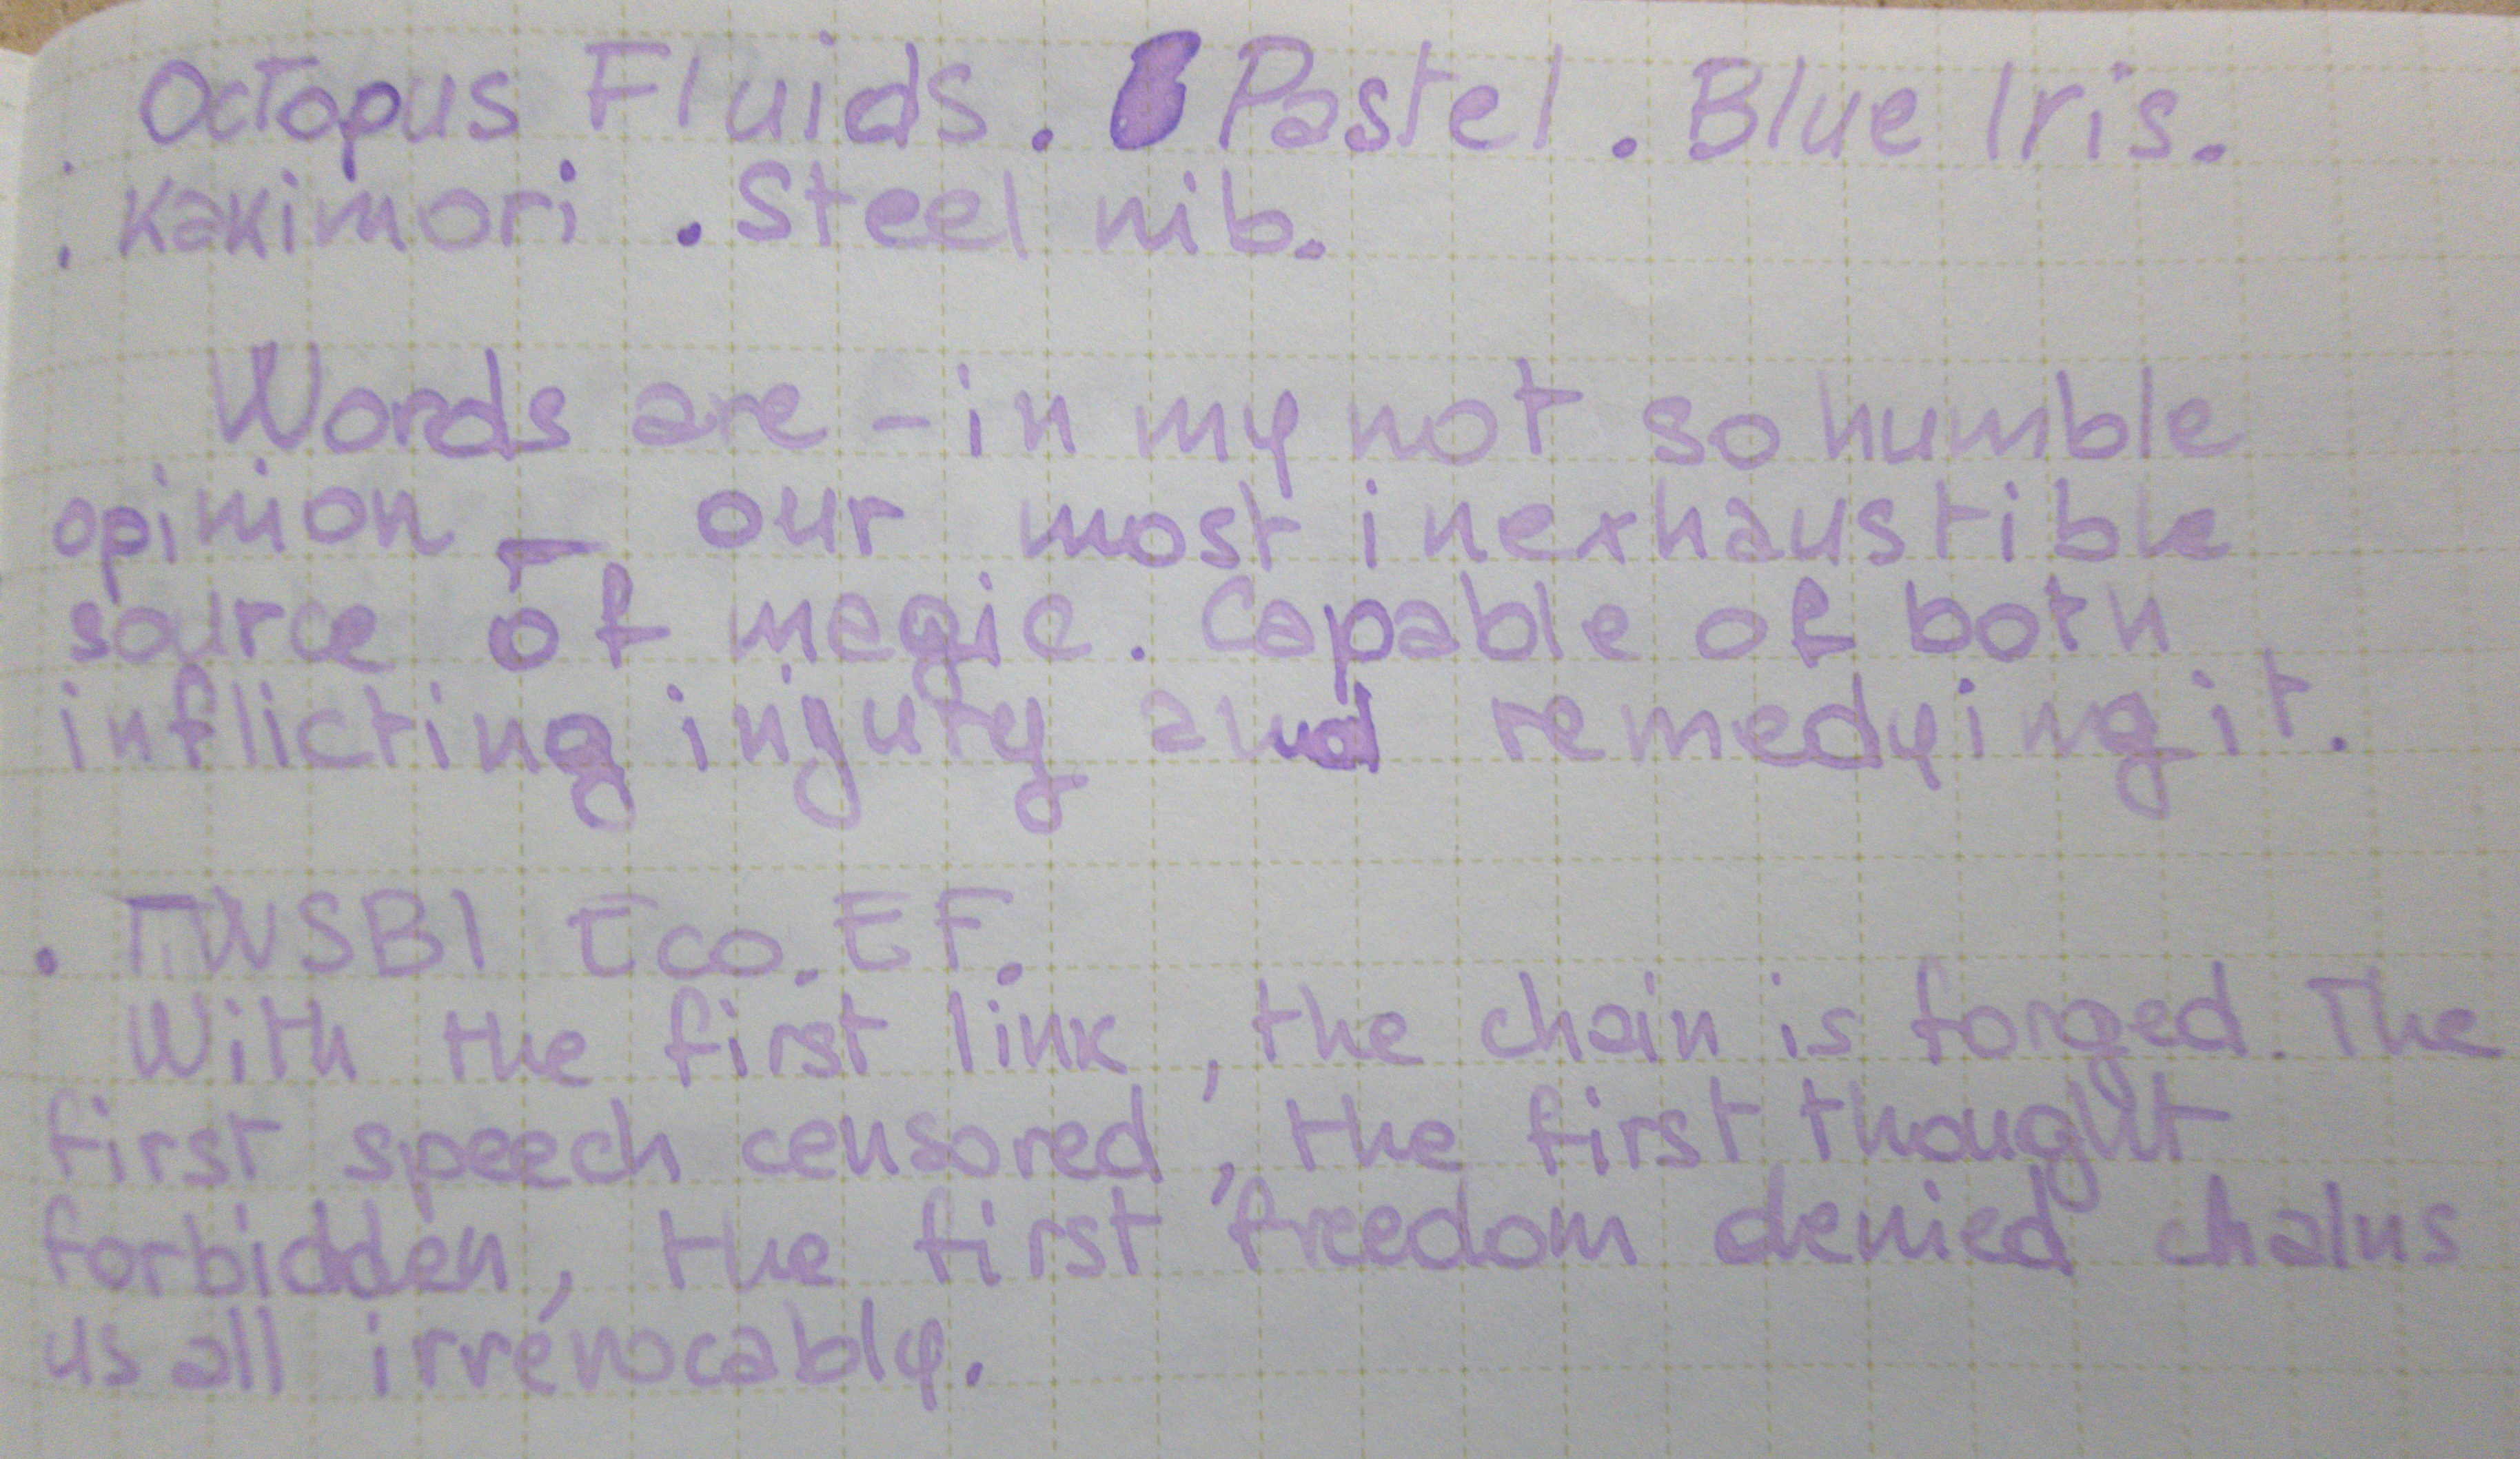 Octopus Fluids. Pastel. Blue Iris.
. Kakimori . Steel nib.
Words are – in my not so humble
opinion – our most inexhaustible
source of magic. Capable of both
inflicting injury and remedying it.
. TWSBI Eco. EF.
With the first link, the chain is forged. The
first speech censored, the first thought
forbidden, the first freedom denied chains
us all irrevocably.